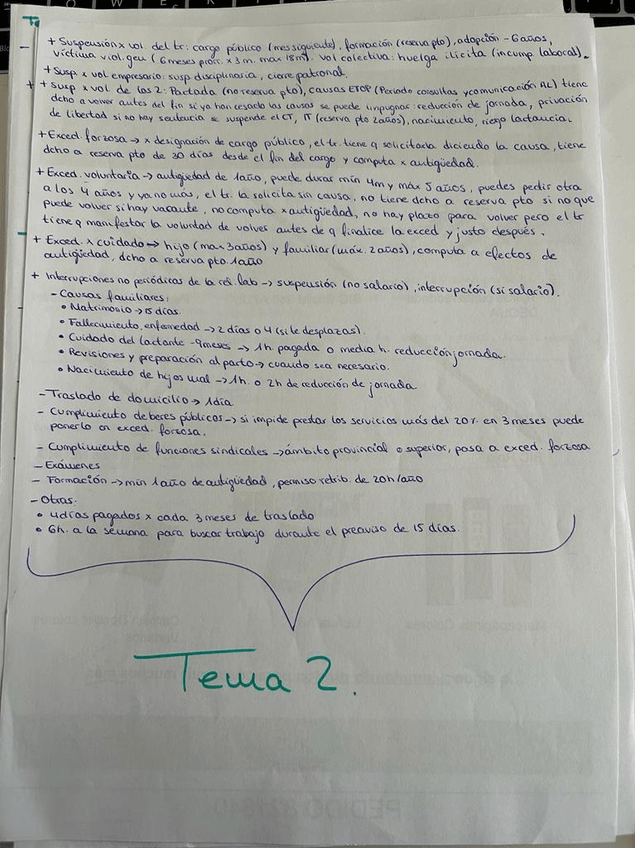 Te
+ Suspensión x vol. del tr: cargo público (mes siguiente), formación (reserva pto), adopción - 6 años,
víctima viol. gen (6 meses prórr. x 3 m. max 18 m). vol colectiva: huelga ilícita (incump laboral).
+ Susp x vol empresario: susp disciplinaria, cierre patronal.
+ + Susp x vol de las 2: Pactada (no reserva pto), causas ETOP (Periodo consultas y comunicación AL) tiene
dcho a volver antes del fin si ya han cesado las causas se puede impugnar: reducción de jornada, privación
de libertad si no hay sentencia se suspende el CT, IT (reserva pto 2 años), nacimiento, riesgo lactancia.
+ Exced. forzosa → x designación de cargo público, el tr. tiene q solicitarla diciendo la causa, tiene
dcho a reserva pto de 30 días desde el fin del cargo y computa x antigüedad.
+ Exced. voluntaria → antigüedad de 1 año, puede durar mín 4m y máx 5 años, puedes pedir otra
a los 4 años y ya no más, el tr. la solicita sin causa, no tiene dcho a reserva pto si no que
puede volver si hay vacante, no computa x antigüedad, no hay plazo para volver pero el tr
tiene q manifestar la voluntad de volver antes de q finalice la exced y justo después.
+ Exced x cuidado → hijo (max 3 años) y familiar (máx. 2 años), computa a efectos de
antigüedad, dcho a reserva pto 1 año
+ Interrupciones no periódicas de la rel. lab → suspensión (no salario), interrupción (si salario).
- Causas familiares:
• Matrimonio → 15 días.
• Fallecimiento, enfermedad → 2 días o 4 (si te desplazas).
• Cuidado del lactante - 9 meses → 1h. pagada o media h. reducción jornada.
• Revisiones y preparación al parto → cuando sea necesario.
• Nacimiento de hijos mal → 1h. o 2h de reducción de jornada
- Traslado de domicilio → 1 día
- Cumplimiento deberes públicos → si impide prestar los servicios más del 20% en 3 meses puede
ponerlo en exced. forzosa.
- Cumplimiento de funciones sindicales → ámbito provincial o superior, pasa a exced. forzosa
- Exámenes
- Formación → mín 1 año de antigüedad, permiso retrib. de 20h/año
- Otras.
• 4 días pagados x cada 3 meses de traslado
• 6h. a la semana para buscar trabajo durante el preaviso de 15 días.
Tema 2.